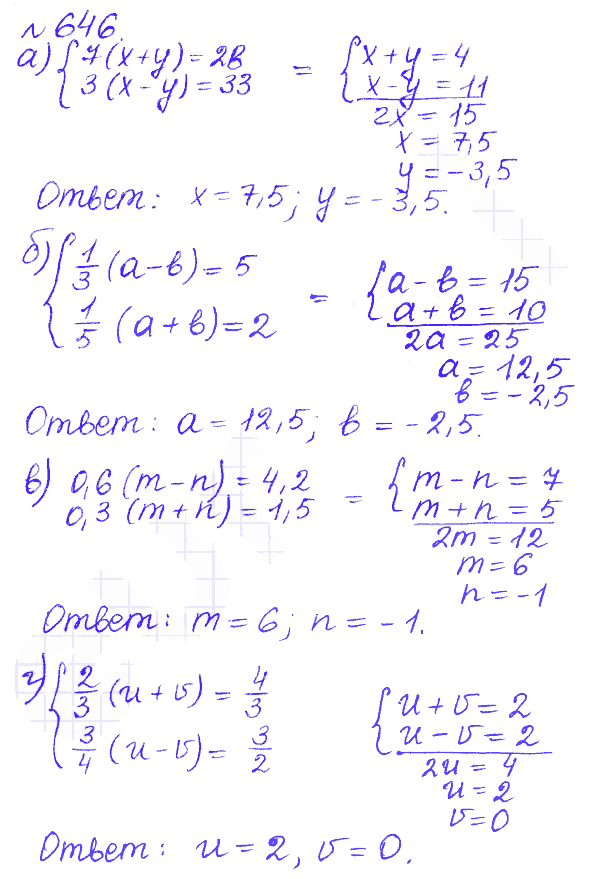 № 646.
а) { 7(x+y) = 28 = { x + y = 4
3(x-y) = 33 x - y = 11
2x = 15
x = 7,5
y = -3,5
Ответ: x = 7,5; y = -3,5.
б) { 1/3 (a-b) = 5 = { a - b = 15
1/5 (a+b) = 2 a + b = 10
2a = 25
a = 12,5
b = -2,5
Ответ: a = 12,5; b = -2,5.
в) 0,6 (m-n) = 4,2 = { m - n = 7
0,3 (m+n) = 1,5 m + n = 5
2m = 12
m = 6
n = -1
Ответ: m = 6; n = -1.
г) { 2/3 (u+v) = 4/3 { u + v = 2
3/4 (u-v) = 3/2 u - v = 2
2u = 4
u = 2
v = 0
Ответ: u = 2, v = 0.